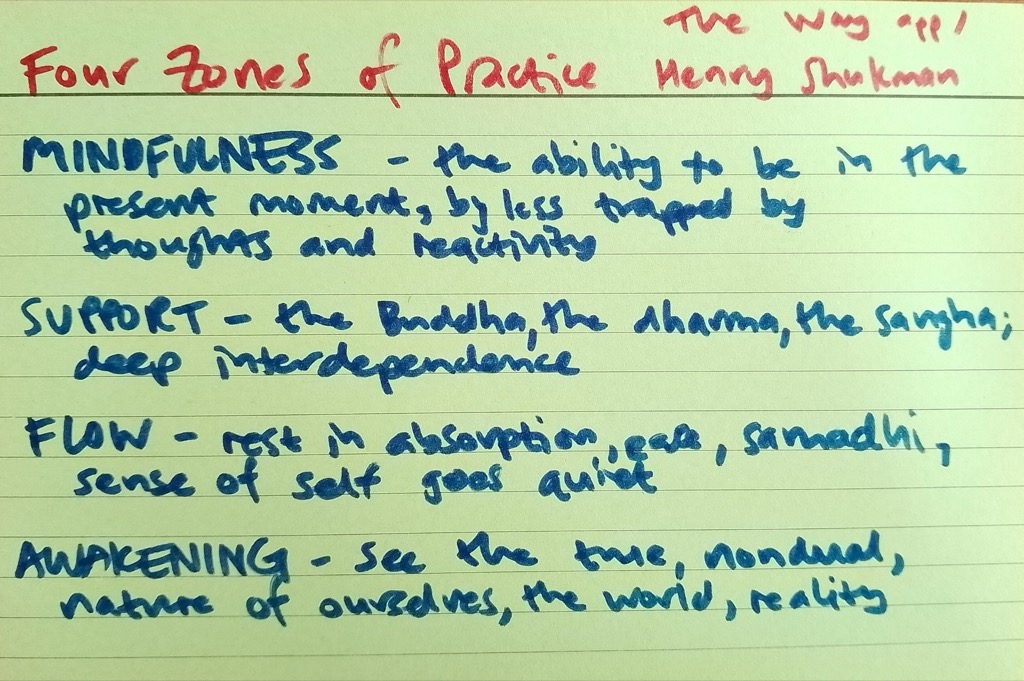 The Way app /
Four Zones of Practice Henry Shukman
MINDFULNESS - the ability to be in the
present moment, by less trapped by
thoughts and reactivity
SUPPORT - the Buddha, the dharma, the sangha;
deep interdependence
FLOW - rest in absorption, ease, samadhi,
sense of self goes quiet
AWAKENING - see the true, nondual,
nature of ourselves, the world, reality